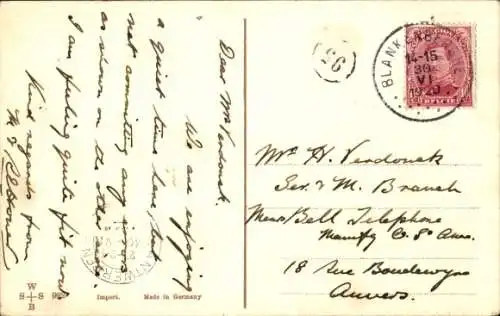 Dear Mr Verdonck.
We are enjoying
a quiet time here, but
not committing any
as shown on the other
I am feeling quite fit now
Kind regards from
36
BLANK
14-15
30
VI
1920
Mr H. Verdonck
Ser. & M. Branch
Mess Bell Telephone
Manufg Co. So. Anon.
18 Rue Boudewyns
Anvers.
ANTWERPEN
W
S + S
B
Import. Made in Germany